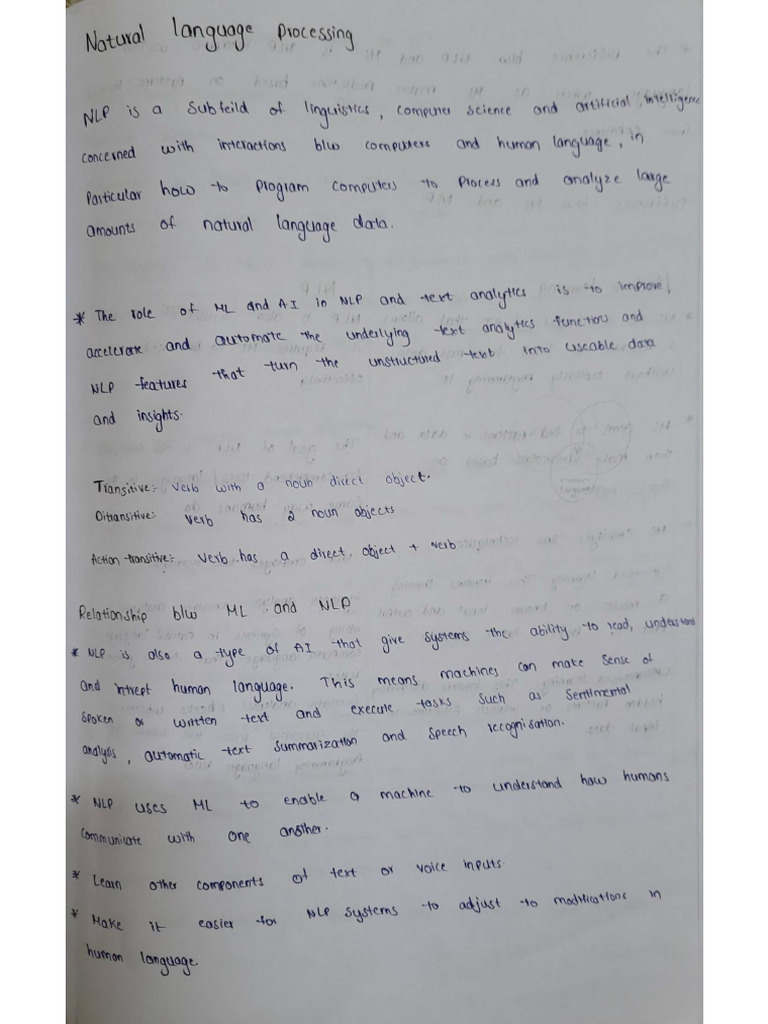 Natural language Processing
NLP is a Subfeild of linguistics, computer science and artificial intelligence
concerned with interactions b/w computers and human language, in
Particular how to program computers to process and analyze large
amounts of natural language data.
* The role of ML and AI in NLP and text analytics is to improve,
accelerate and automate the underlying text analytics function and
NLP features that turn the unstructured text into useable data
and insights.
Transitive:- Verb with a noun direct object.
Ditransitive:- Verb has 2 noun objects
Action-transitive:- Verb has a direct object + verb
Relationship b/w ML and NLP
* NLP is also a type of AI that give systems the ability to read, understand
and intrept human language. This means machines can make sense of
spoken or written text and execute tasks such as Sentimental
analysis, automatic text summarization and speech recognisation.
* NLP uses ML to enable a machine to understand how humans
communicate with one another.
* Learn other components of text or voice inputs.
* Make it easier for NLP systems to adjust to modifications in
human language.